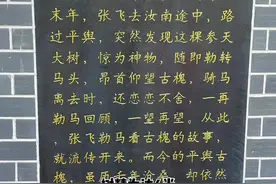 末年，张飞去汝南途中，路
过平舆，突然发现这棵参天
大树，惊为神物，随即勒转
马头，昂首仰望古槐，骑马
离去时，还恋恋不舍，一再
勒马回顾，一望再望。从此
，张飞勒马看古槐的故事，
就流传开来。而今的平舆古
槐，虽历千年沧桑，却依然